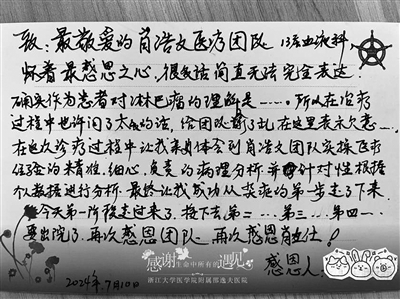 致:最敬爱的肖浩文医疗团队 13F血液科
怀着最感恩之心,很多话简直无法完全表达.
确实作为患者对淋巴瘤的理解是……所以在治疗
过程中也许问了太多的话,给团队添了乱在这里表示欠意…
在这次诊疗过程中让我亲身体会到肖浩文团队实操医疗
经验的精准.细心.负责的病理分析并针对性根据
个人数据进行分析.最终让我成功从类癌的第一步走了下来
今天第一阶段走过来了.接下去第二…第三…第四…
要出院了.再次感恩团队 再次感恩肖主任!
感谢生命中所有的遇见
感恩人:
浙江大学医学院附属邵逸夫医院
2024年7月10日